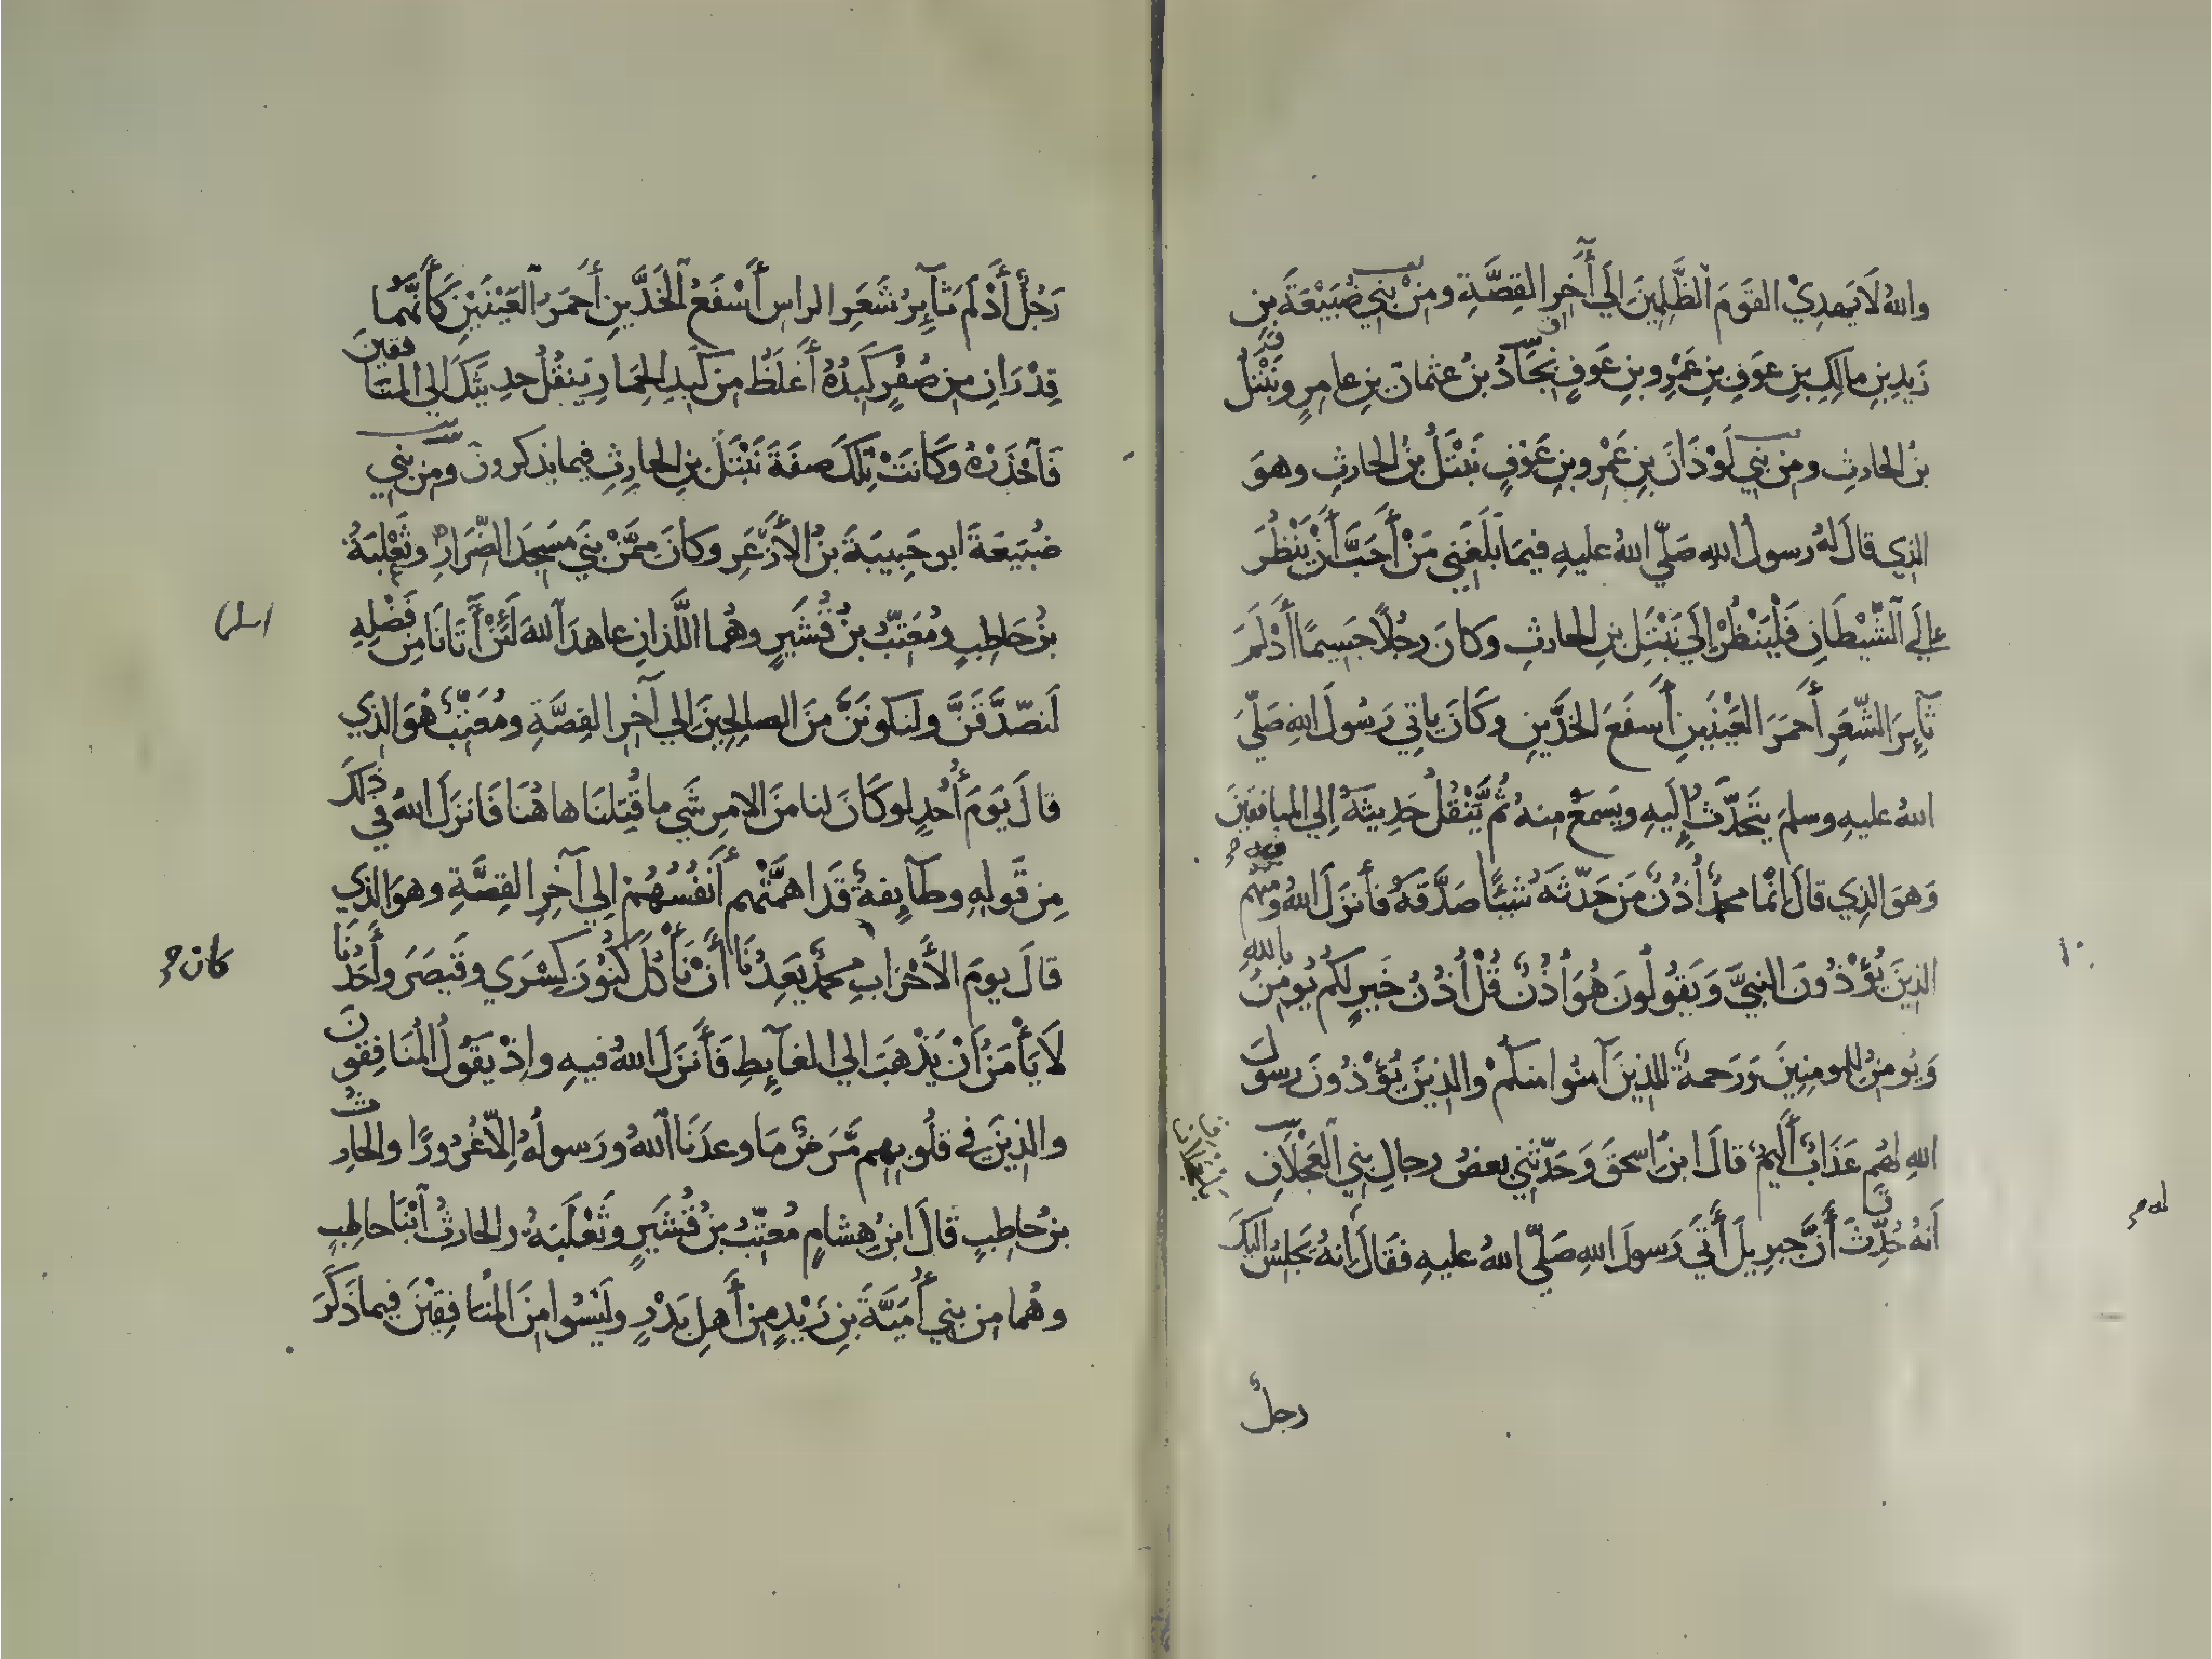 والله لَا يَهدِيْ القَومَ الظَّلِمِينَ إلَي أَخِرِ القِصَّةِ ومِنْ بَنِي ضُبَيْعَةَ بنِ
زَيدِ بنِ مالِكِ بنِ عَوفِ بنِ عَمْرِو بنِ عَوفٍ بِجَادُ بنُ عثمانَ بنِ عامرٍ ونَبْتَلُ
بنُ الحارثِ ومِن بَنِي لَوْذَانَ بنِ عَمْرِو بنِ عَوْفٍ نَبْتَلُ بنُ الحارثِ وهوَ
الذي قالَ لهُ رسولُ اللهِ صَلّي اللهُ عليهِ فيمَا بَلَغَنِي مَنْ أَحَبَّ أَنْ يَنْظُرَ
إلَي الشَّيْطَانِ فَلْيَنْظُرْ إلَي نَبْتَلِ بنِ الحارثِ وكانَ رجُلاً جَسِيمًا أَذْلَمَ
ثَآيِرَ الشّعَرِ أَحمَرَ العَيْنَينِ أَسفَعَ الخَدَّينِ وكَانَ ياتِي رَسُولَ اللهِ صَلّيَ
اللهُ عليهِ وسلمَ يتَحَدَّثُ إلَيهِ ويَسمَعُ مِنهُ ثُمَّ يَنْقُلُ حَدِيثَهُ إلي المنافقينَ
وَهوَ الذِي قالَ إنّمَا محمدٌ أُذُنٌ مَن حَدّثَهُ شَيْئًا صَدَّقَهُ فأنزَلَ اللهُ ومنهم
الذِينَ يُؤْذُونَ النبيَّ وَيَقُولُونَ هُوَ أُذُنٌ قُلْ أُذُنُ خَيرٍ لكُم يُومِنُ باللهِ
وَيُومِنُ للمومِنِينَ وَرَحمةٌ للذِينَ آمنُوا منكُمْ والذِينَ يُؤْذُونَ رسولَ
اللهِ لهُم عَذَابٌ أَلِيمٌ قالَ ابنُ اسحقَ وَحَدّثَنِي بعضُ رجالِ بَنِي العَجْلَانِ
أَنهُ حُدِّثَ أَنَّ جبرِيلَ أَتَي رَسولَ اللهِ صَلّي اللهُ عليهِ فقَالَ إنهُ يَجلِسُ إليكَ
رجلٌ
رَجُلٌ أَذْلَمُ ثَآيِرُ شَعَرِ الراسِ أَسْفَعُ الخَدَّينِ أَحمَرُ العَيْنَينِ كَأَنَّهُمَا
قِدْرَانِ مِن صُفْرٍ كَبِدُهُ أَغلَظُ مِن كَبِدِ الحِمَارِ يَنقُلُ حدِيثَكَ إلي المنافقينَ
فَاحْذَرْهُ وكَانتْ تِلكَ صِفَةَ نَبْتَلَ بنِ الحارِثِ فيما يذكرونَ ومن بَنِي
ضُبَيعَةَ ابو حَبِيبَةَ بنُ الأَزْعَرِ وكانَ مِمَّنْ بَنَي مَسجِدَ الضّرَارِ وثَعْلبَةُ
بنُ حَاطِبٍ ومُعَتِّبُ بنُ قُشَيرٍ وهُمَا اللّذانِ عاهدَا اللهَ لَئنْ أَتَانَا مِن فَضْلِهِ
لَنصّدَّقَنَّ ولنكونَنَّ منَ الصالحِينَ إلي آخرِ القِصَّةِ ومُعَتّبٌ هُوَ الذِي
قالَ يَومَ أُحُدٍ لو كَانَ لنا منَ الامرِ شَي ما قُتِلنَا هاهُنَا فَانزَلَ اللهُ في ذلكَ
مِن قَولِهِ وطَآيِفةٌ قَد اهمَّتْهم أَنفُسُهُمْ إلي آخِرِ القِصَّةِ وهوَ الذِي
قالَ يومَ الأَحْزابِ محمدٌ يَعِدُنَا أَنْ نَأْكُلَ كُنُوزَ كِسْرَي وقَيصَرَ وأَحَدُنَا
لَا يَأْمَنُ أَنْ يَذْهَبَ إلي الغآيِطِ فَأَنزَلَ اللهُ فيهِ وإذْ يَقُولُ المُنَافِقونَ
والذِينَ في قلُوبِهِم مَّرَضٌ مَا وعدَنَا اللهُ ورَسولُهُ إلّا غُرُورًا والحارثُ
بنُ حاطِبٍ قالَ ابنُ هِشامٍ مُعَتِّبُ بنُ قُشَيرٍ وثَعْلَبَةُ والحارثُ ابْنَا حاطِبٍ
وهُما مِن بنِي أُمَيَّةَ بنِ زَيْدٍ مِن أَهلِ بَدْرٍ ولَيْسُوا مِنَ المنَافِقِيْنَ فِيما ذَكَرَ
كان